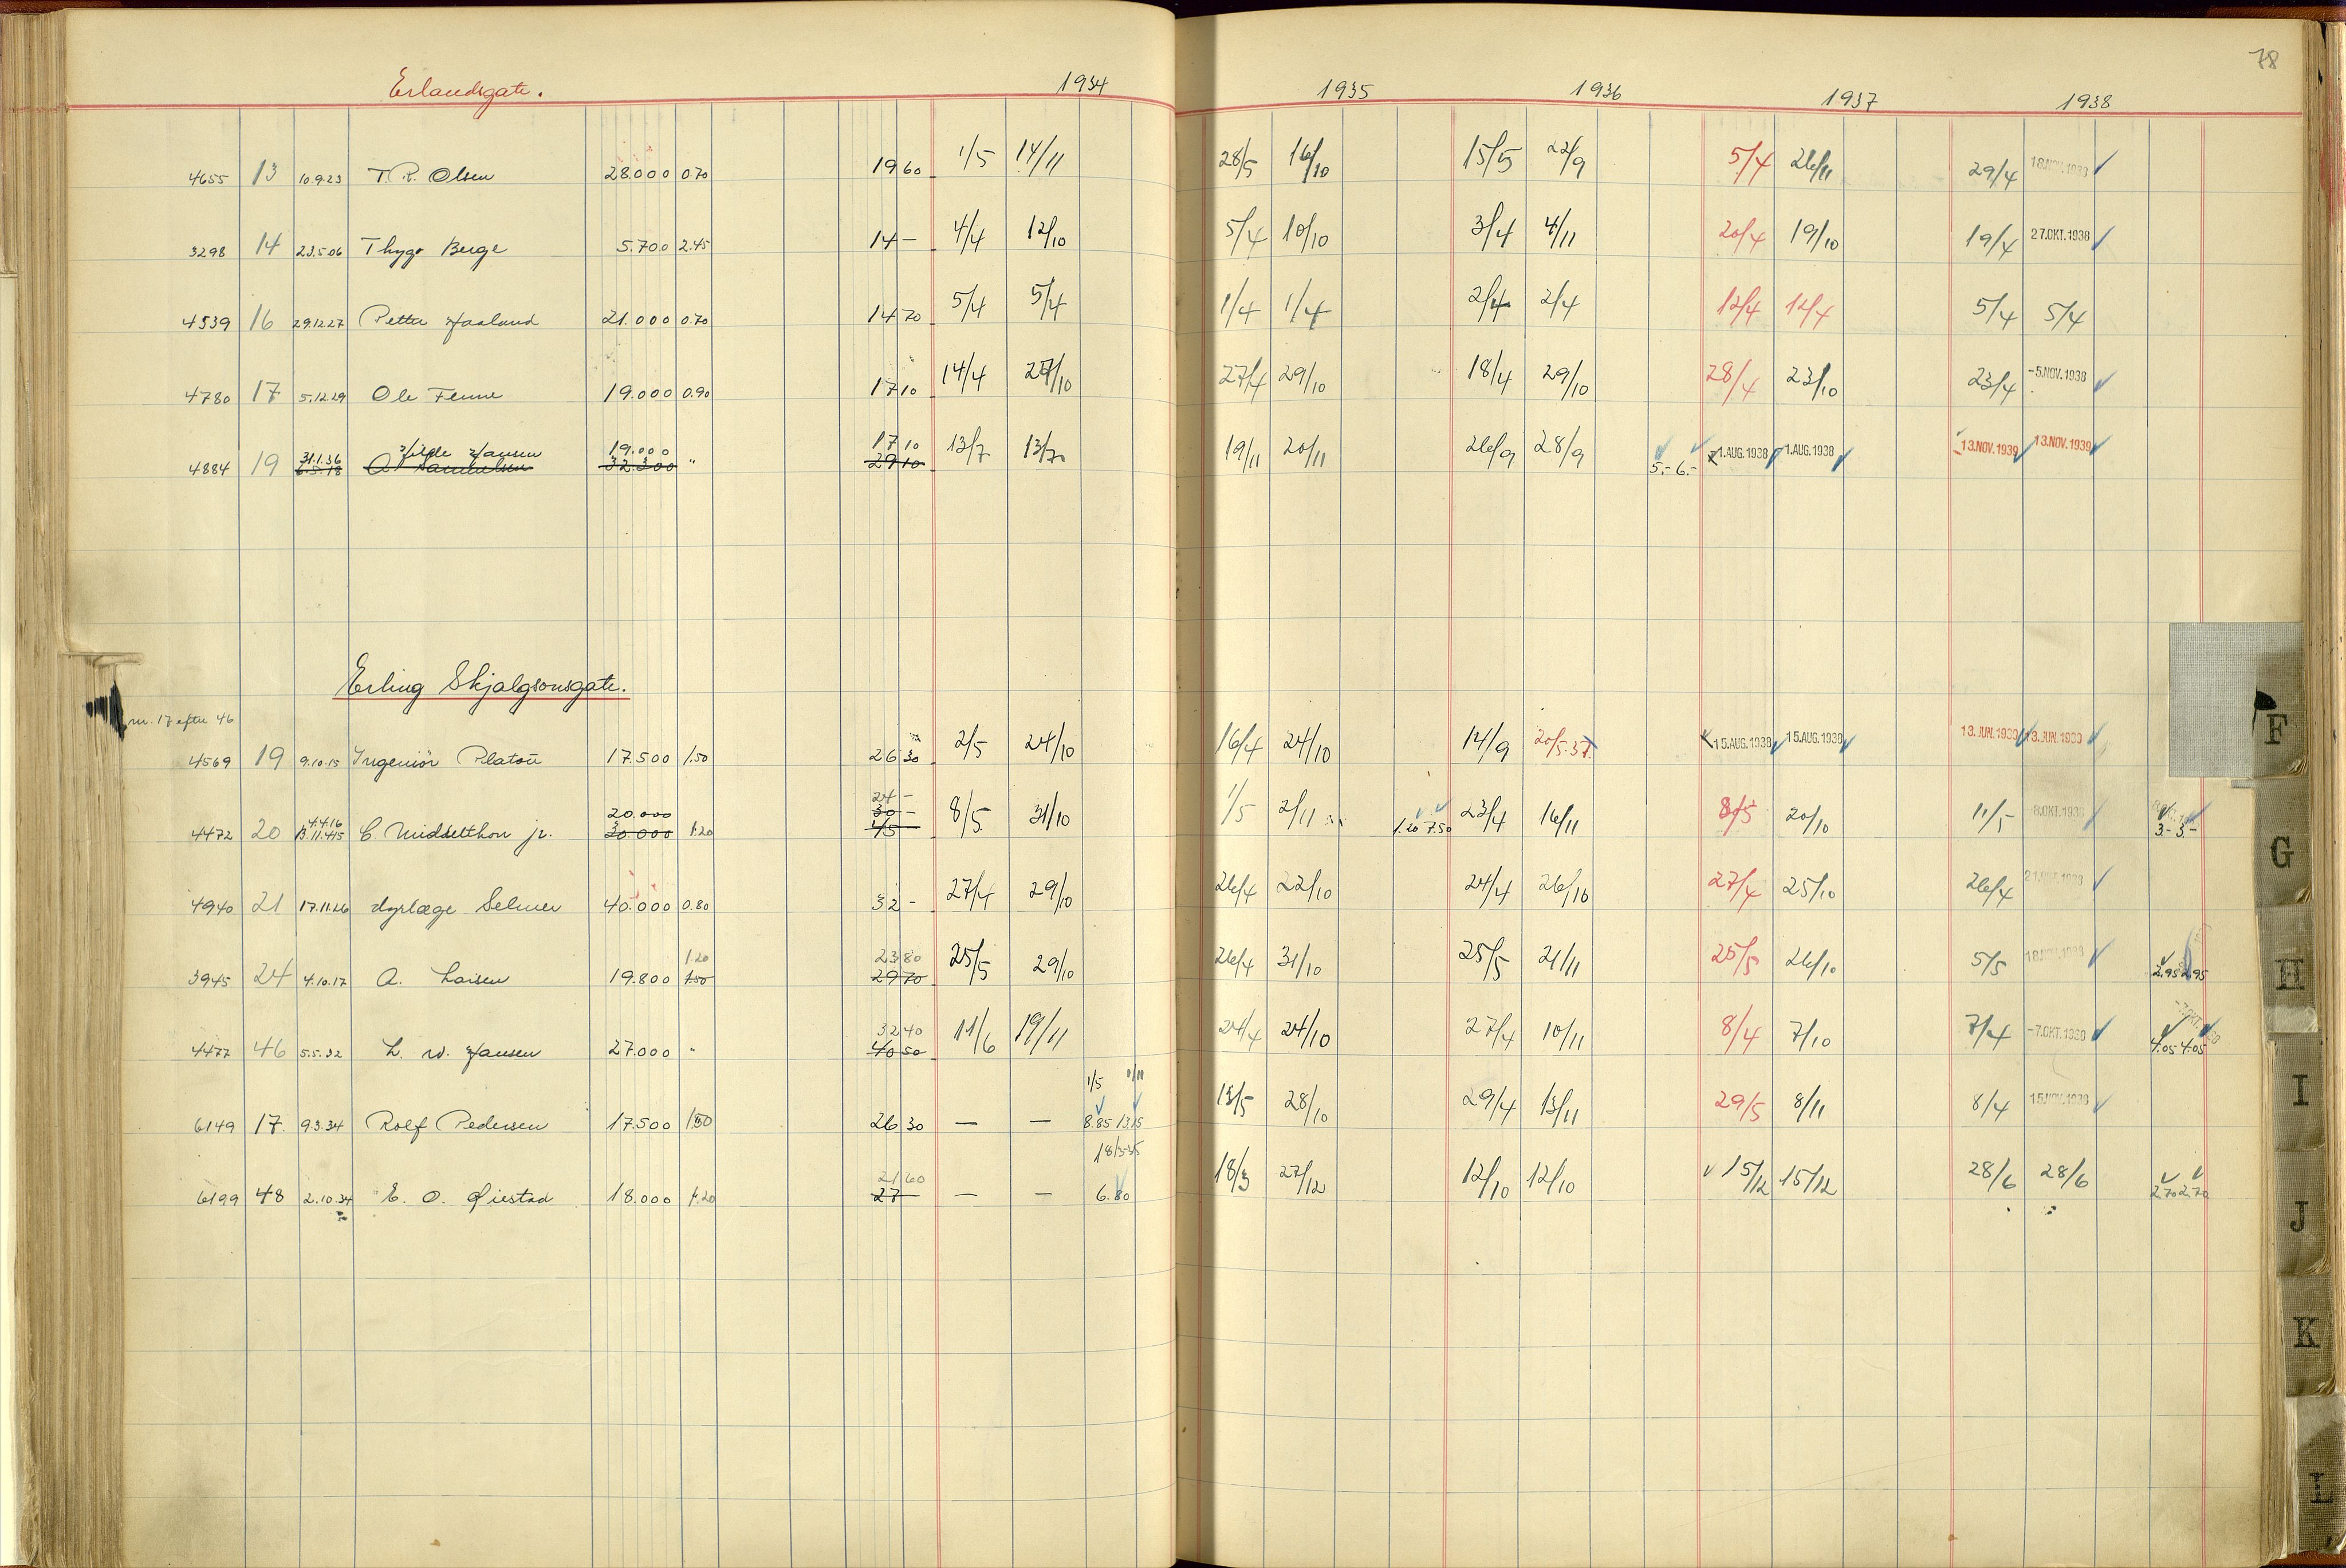 78
Erlandsgate. 1934 1935 1936 1937 1938
4655 13 10.9.23 T. R. Olsen 28.000 0.70 19 60 1/5 14/11 28/5 16/10 15/5 22/9 5/4 26/11 29/4 18.NOV.1938
3298 14 23.5.06 Thygo Berge 5.700 2.45 14 – 4/4 12/10 5/4 10/10 3/4 4/11 20/4 19/10 19/4 27.OKT.1938
4539 16 29.12.27 Petter Haaland 21.000 0.70 14 70 5/4 5/4 1/4 1/4 2/4 2/4 12/4 12/4 5/4 5/4
4780 17 5.12.29 Ole Fenne 19.000 0.90 17 10 14/4 27/10 27/4 29/10 18/4 29/10 28/4 23/10 23/4 -5.NOV.1938
31.1.36 Hilde Hansen 19.000 17 10
4884 19 6.5.18 A Samuelsen 32.300 " 29 10 13/7 13/7 19/11 20/11 26/9 28/9 5.- 6.- -1.AUG.1938 -1.AUG.1938 13.NOV.1939 13.NOV.1939
Erling Skjalgsonsgate.
nr. 17 efter 46
4569 19 9.10.15 Ingeniör Platou 17.500 1.50 26 30 2/5 24/10 16/4 24/10 14/9 20/5.37. 15.AUG.1938 15.AUG.1938 13.JUN.1939 13.JUN.1939
4.4.16 20.000 24 –
30 –
4472 20 13.11.415 C Midtelthon jr. 30.000 1.20 45 8/5 31/10 1/5 2/11 1.20 7.50 23/4 16/11 8/5 20/10 11/5 -8.OKT.1938 3.- 3.-
4940 21 17.11.26 dyrlæge Selmer 40.000 0.80 32 – 27/4 29/10 26/4 22/10 24/4 26/10 27/4 25/10 26/4
1.20 23 80
3945 24 4.10.17 A. Larsen 19.800 1.50 29 70 25/5 29/10 26/4 31/10 25/5 21/11 25/5 26/10 5/5 18.NOV.1938 2.95 2.95
32 40
4477 46 5.5.32 L. W. Hansen 27.000 " 40 50 11/6 19/11 24/4 24/10 27/4 10/11 8/4 7/10 7/4 -7.OKT.1938 4.05 4.05
1/5 1/11
6149 17. 9.3.34 Rolf Pedersen 17.500 1.50 26 30 — — 8.85 13.15 13/5 28/10 29/4 13/11 29/5 8/11 8/4 15.NOV.1938
21 60 18/3-35
6199 48 2.10.34 E. O. Øiestad 18.000 1.20 27 — — 6.80 18/3 27/12 12/10 12/10 15/12 15/12 28/6 28/6 2.70 2.70
F
G
H
I
J
K
L